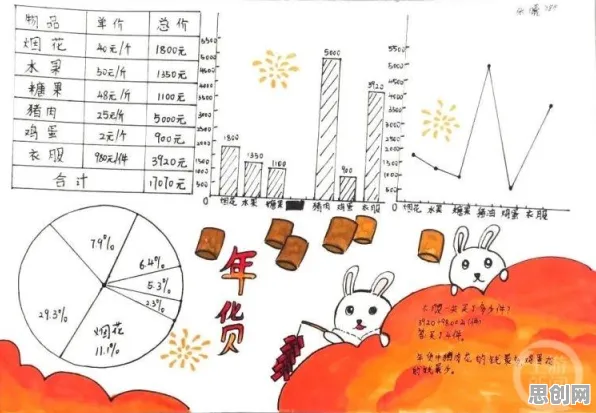 物品 单价 总价
烟花 40元/个 1800元
水果 50元/斤 1350元
糖果 48元/斤 1100元
猪肉 25元/斤 5000元
鸡蛋 2元/个 900元
衣服 980元/件 3920元
合计 17070元
5500
5000
4500
4000
3500
3000
2500
2000
1500
1000
500
1800
1350
1100
5000
900
3920
烟花 水果 糖果 猪肉 鸡蛋 衣服
5500
5000
4500
4000
3500
3000
2500
2000
1500
1000
500
烟花 水果 糖果 猪肉 鸡蛋 衣服
7.9%
6.4%
5.3%
29.3%
烟花
11.1%
年货
3920÷980=4(件)
思创网